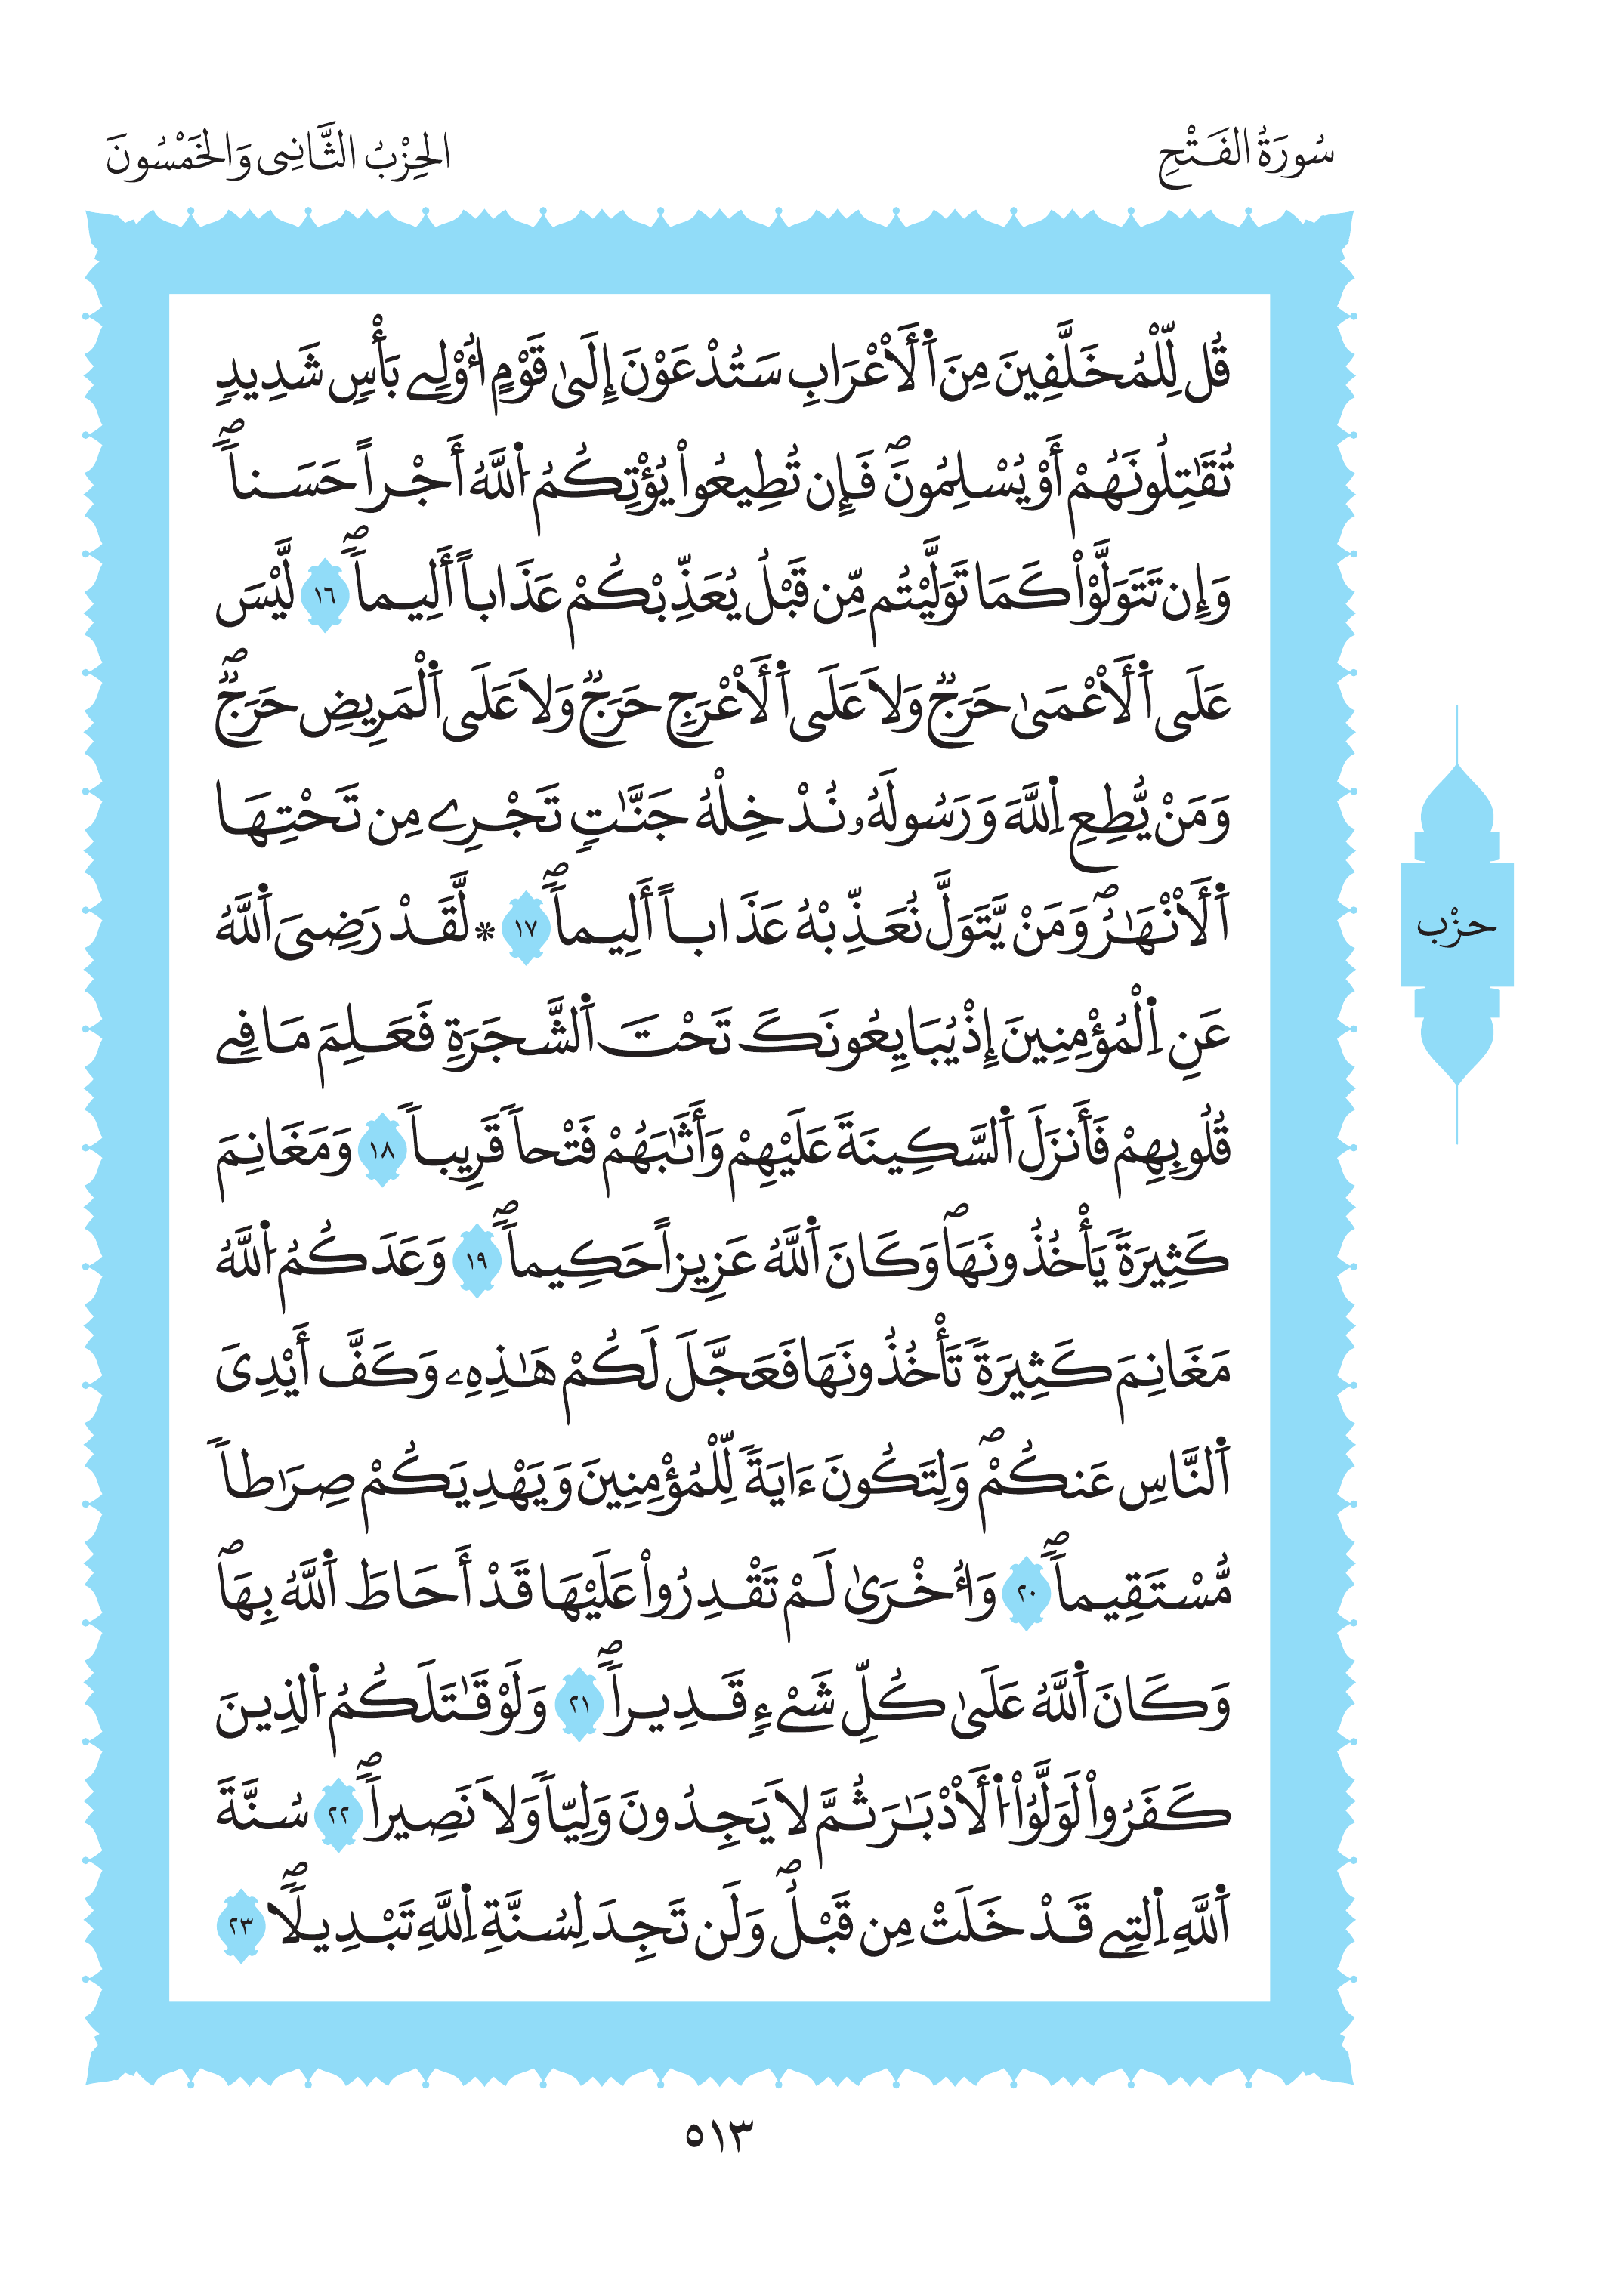 سُورَةُ الفَتْحِ
الحِزْبُ الثَّانِي وَالخَمْسُونَ
قُل لِّلْمُخَلَّفِينَ مِنَ اَ۬لْأَعْرَابِ سَتُدْعَوْنَ إِلَىٰ قَوْمٍ ا۟وْلِے بَأْسٖ شَدِيدٖ
تُقَٰتِلُونَهُمْ أَوْ يُسْلِمُونَۖ فَإِن تُطِيعُواْ يُؤْتِكُمُ اُ۬للَّهُ أَجْراً حَسَناٗۖ
وَإِن تَتَوَلَّوْاْ كَمَا تَوَلَّيْتُم مِّن قَبْلُ يُعَذِّبْكُمْ عَذَاباً أَلِيماٗۖ ١٦ لَّيْسَ
عَلَى اَ۬لْأَعْمَىٰ حَرَجٞ وَلَا عَلَى اَ۬لْأَعْرَجِ حَرَجٞ وَلَا عَلَى اَ۬لْمَرِيضِ حَرَجٞۖ
وَمَنْ يُّطِعِ اِ۬للَّهَ وَرَسُولَهُۥ نُدْخِلْهُ جَنَّٰتٖ تَجْرِے مِن تَحْتِهَا
اَ۬لْأَنْهَٰرُۖ وَمَنْ يَّتَوَلَّ نُعَذِّبْهُ عَذَاباً أَلِيماٗۖ ١٧ * لَّقَدْ رَضِيَ اَ۬للَّهُ
عَنِ اِ۬لْمُؤْمِنِينَ إِذْ يُبَايِعُونَكَ تَحْتَ اَ۬لشَّجَرَةِ فَعَلِمَ مَا فِے
قُلُوبِهِمْ فَأَنزَلَ اَ۬لسَّكِينَةَ عَلَيْهِمْ وَأَثَٰبَهُمْ فَتْحاٗ قَرِيباٗ ١٨ وَمَغَانِمَ
كَثِيرَةٗ يَأْخُذُونَهَاۖ وَكَانَ اَ۬للَّهُ عَزِيزاً حَكِيماٗۖ ١٩ وَعَدَكُمُ اُ۬للَّهُ
مَغَانِمَ كَثِيرَةٗ تَأْخُذُونَهَا فَعَجَّلَ لَكُمْ هَٰذِهِۦ وَكَفَّ أَيْدِيَ
اَ۬لنَّاسِ عَنكُمْۖ وَلِتَكُونَ ءَايَةٗ لِّلْمُؤْمِنِينَ وَيَهْدِيَكُمْ صِرَٰطاٗ
مُّسْتَقِيماٗۖ ٢٠ وَا۟خْرَىٰ لَمْ تَقْدِرُواْ عَلَيْهَا قَدْ أَحَاطَ اَ۬للَّهُ بِهَاۖ
وَكَانَ اَ۬للَّهُ عَلَىٰ كُلِّ شَےْءٖ قَدِيراٗۖ ٢١ وَلَوْ قَٰتَلَكُمُ اُ۬لذِينَ
كَفَرُواْ لَوَلَّوُاْ اُ۬لْأَدْبَٰرَ ثُمَّ لَا يَجِدُونَ وَلِيّاٗ وَلَا نَصِيراٗۖ ٢٢ سُنَّةَ
اَ۬للَّهِ اِ۬لتِے قَدْ خَلَتْ مِن قَبْلُۖ وَلَن تَجِدَ لِسُنَّةِ اِ۬للَّهِ تَبْدِيلاٗۖ ٢٣
حِزْب
٥١٣